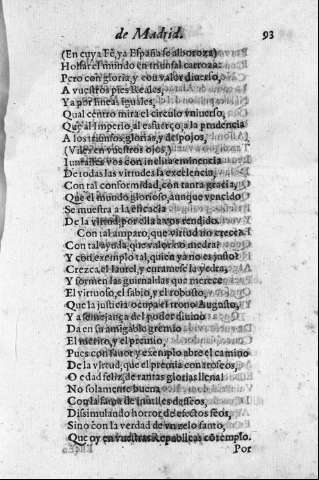 de Madrid. 93
(En cuya Fè, ya España se alboroza)
Hollar el mundo en triunfal carroza:
Pero con gloria, y con valor diuerso,
A vuestros pies Reales,
Ya por lineas iguales,
Qual centro mira el circulo vniuerso,
Que al Imperio, al esfuerço, a la prudencia
A los triunfos, glorias, y despojos,
(Vale en vuestros ojos)
en vos con inclita eminencia
De todas las virtudes la excelencia,
Con tal conformidad, con tanta gracia,
Que el mundo glorioso, aunque vencido
Se muestra a la eficacia
De la virtud, por ella a vos rendido.
Con tal amparo, que virtud no crece?
Con tal ayuda, que valor no medra?
Y con exemplo tal, quien ya no es justo?
Crezca el laurel, y enramese la yedra,
Y formen las guirnaldas que merece
El virtuoso, el sabio, y el robusto,
Que la justicia ocupa el trono Augusto,
Y a semejança del poder diuino
Da en su amigable gremio
El merito, y el premio,
Pues con fauor y exemplo abre el camino
De la virtud, que el premia con trofeos,
O edad feliz, de tantas glorias llena!
No solamente buena
Con la fama de inutiles desseos,
Dissimulando horror de efectos feos,
Sino con la verdad de vn zelo santo,
Que oy en vuestras Republicas cõtemplo.
Por